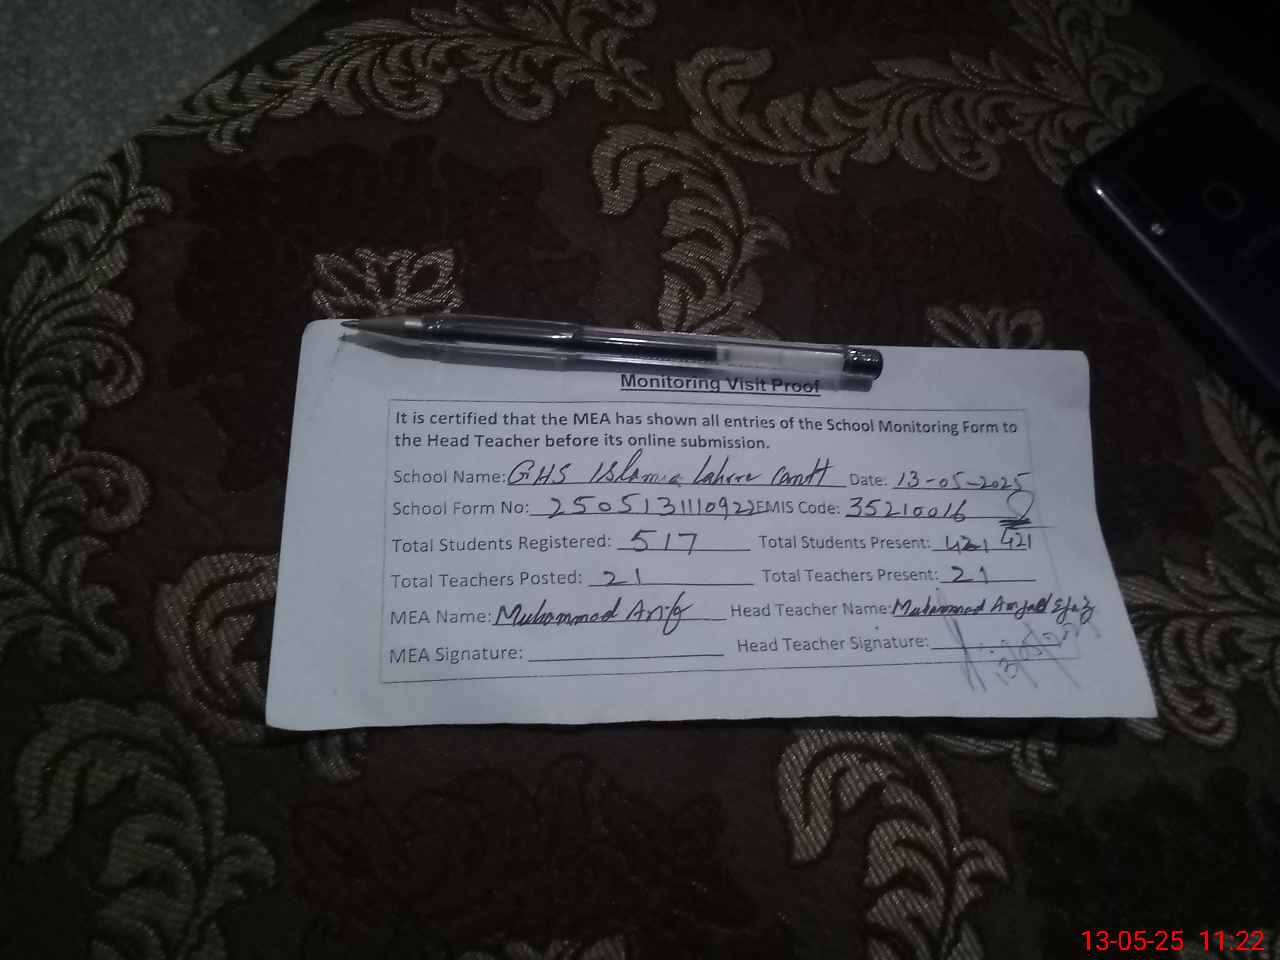 Monitoring Visit Proof
It is certified that the MEA has shown all entries of the School Monitoring Form to
the Head Teacher before its online submission.
School Name: GHS Islamia Lahore Cantt Date: 13-05-2025
School Form No: 2505131110922 EMIS Code: 35210016
Total Students Registered: 517 Total Students Present: 421 421
Total Teachers Posted: 21 Total Teachers Present: 21
MEA Name: Muhammad Head Teacher Name: Muhammad Amjad Ejaz
MEA Signature: Head Teacher Signature:
13-05-25 11:22